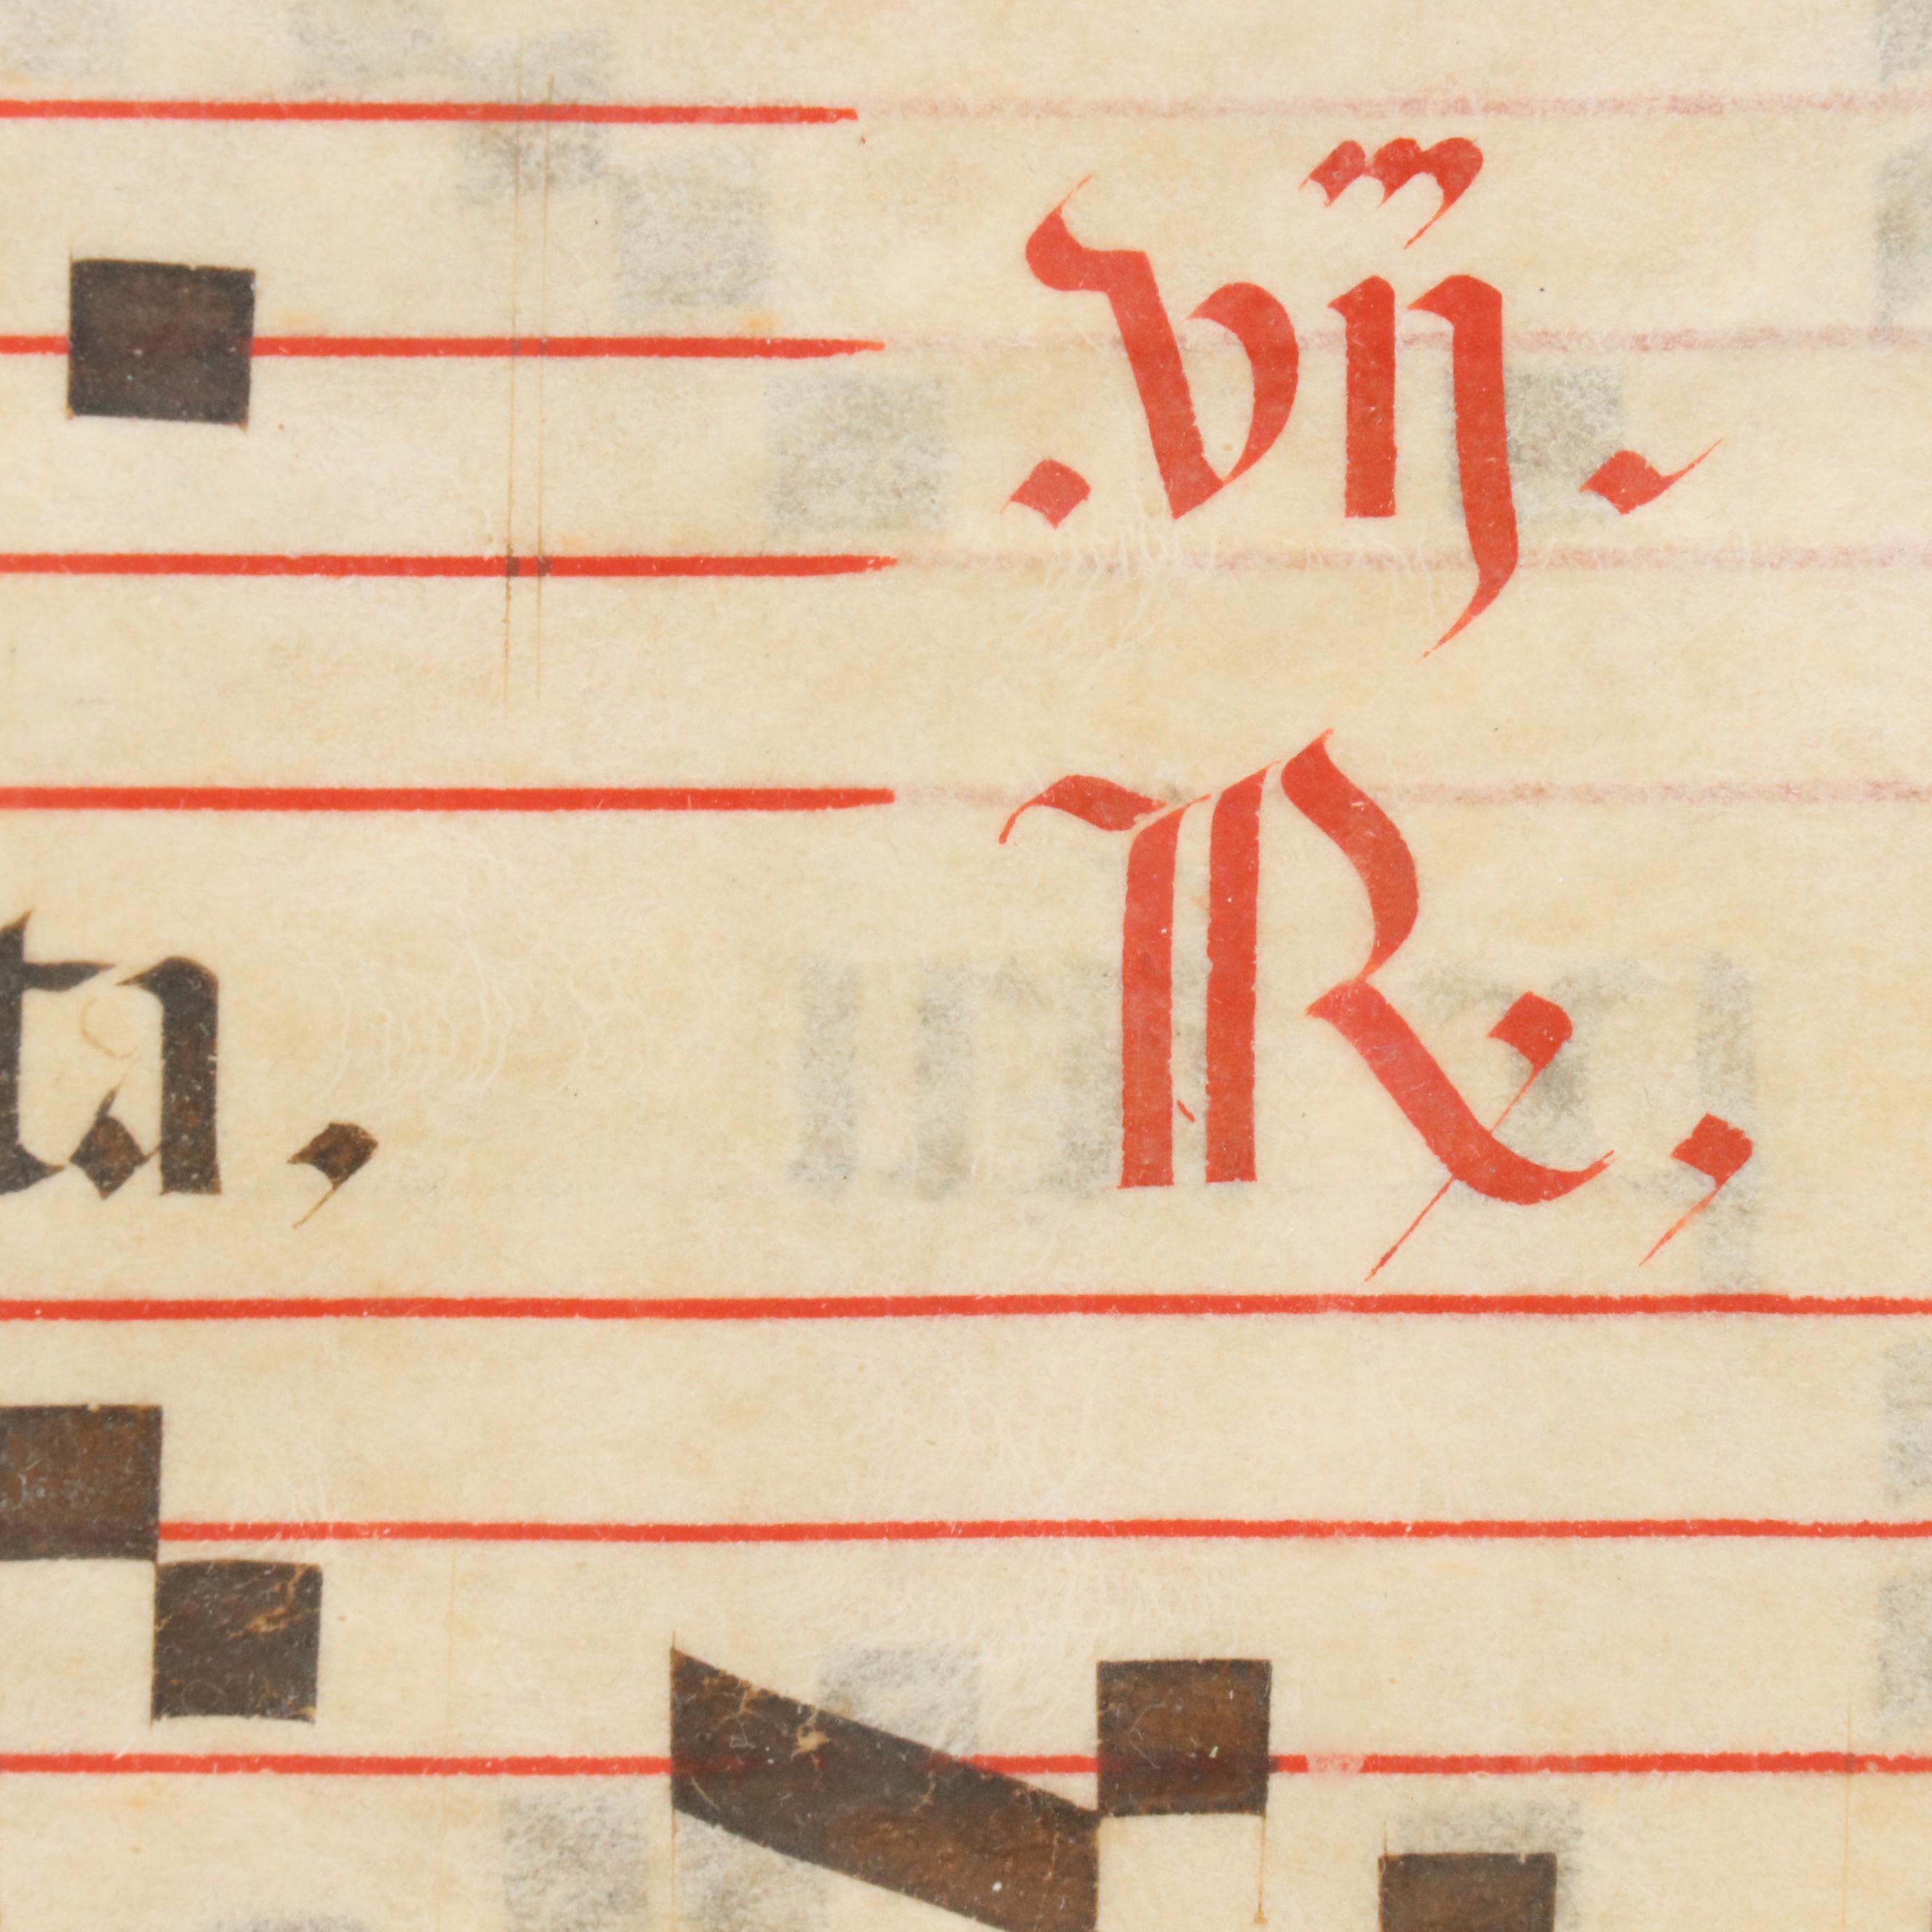 .vij.
ta, ℟,